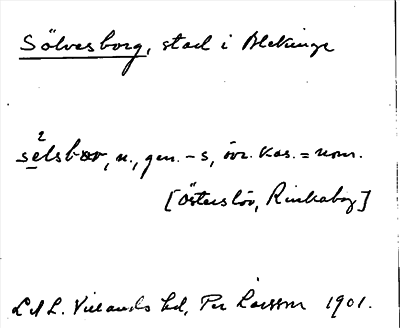 Sölvesborg, stad i Blekinge
2
selsbor, n., gen. -s, övr. kas. = nom.
[Österslöv, Rinkaby]
LdL. Villands hd, Per Larsson 1901.